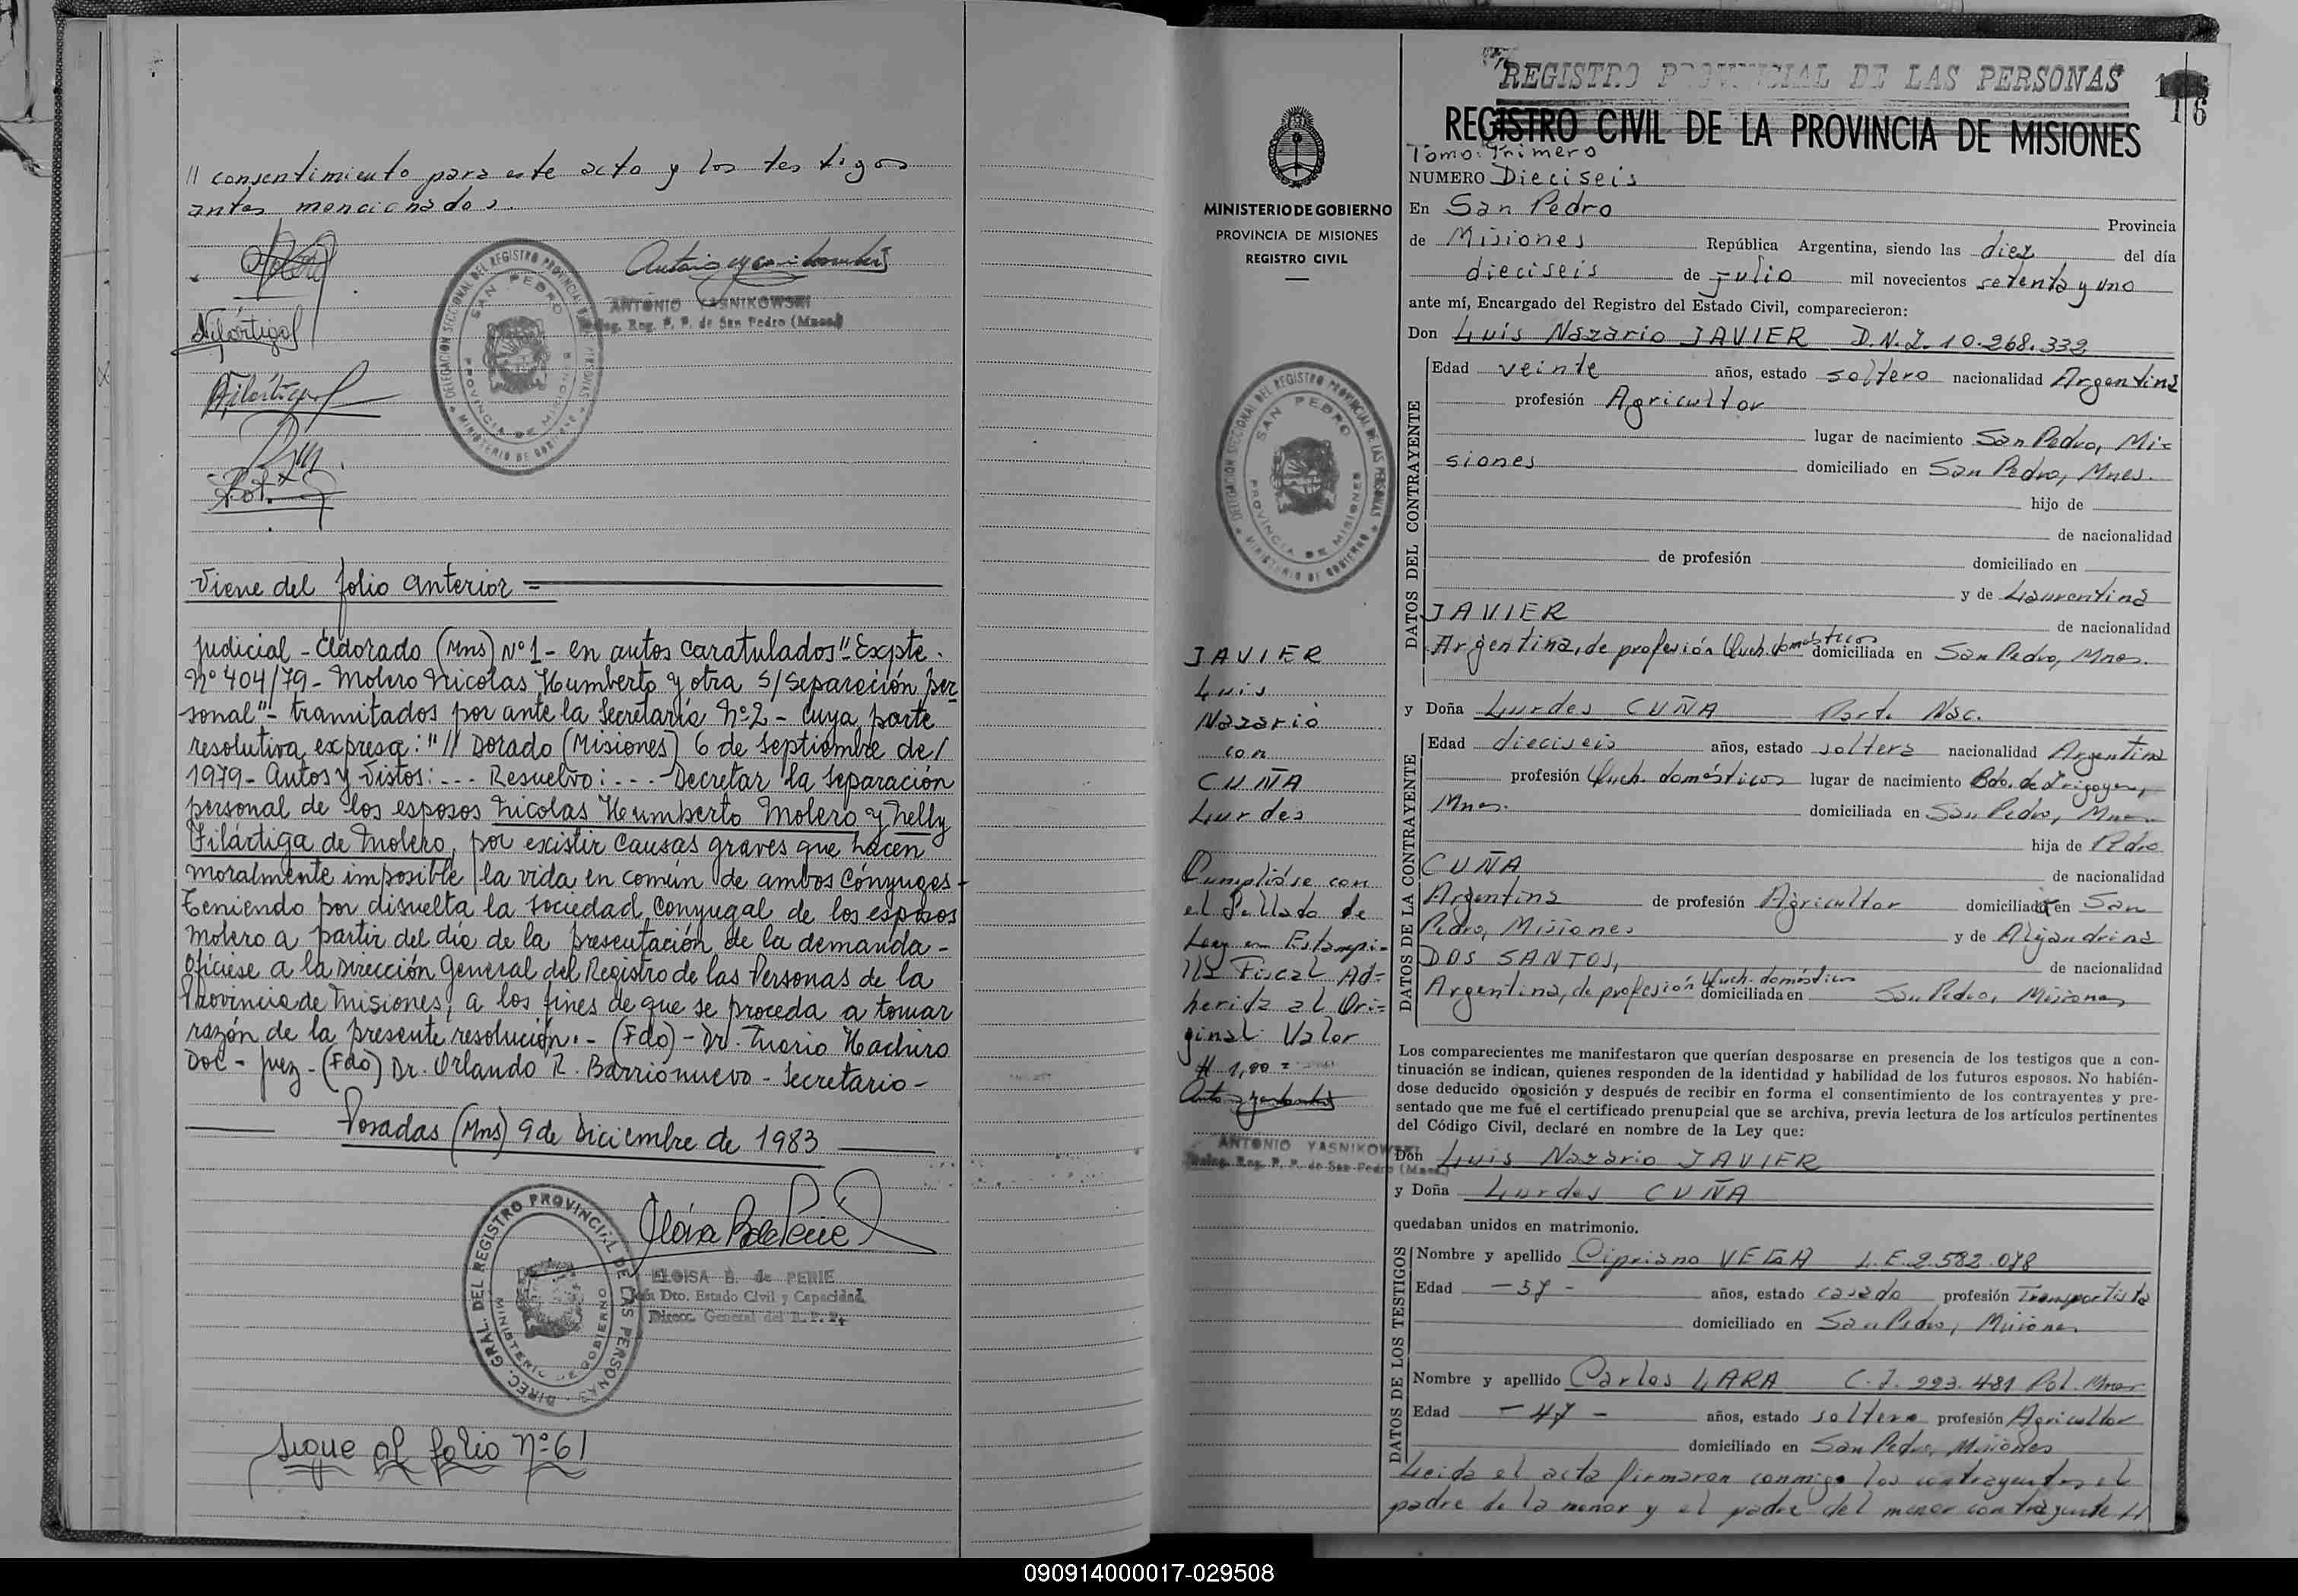 // consentimiento para este acto y los testigos
antes mencionados.
DELEGACION SECCIONAL DEL REGISTRO PROVINCIAL DE LAS PERSONAS
SAN PEDRO
PROVINCIA DE MISIONES
MINISTERIO DE GOBIERNO
ANTONIO YASNIKOWSKI
Reg. P. P. de San Pedro (Mnes)
Viene del folio anterior =
Judicial - Eldorado (Mns) Nº 1 - en autos caratulados "Expte.
Nº 404/79 - Molero Nicolas Humberto y otra S/ Separación per
sonal" - tramitados por ante la Secretaría Nº 2 - cuya parte
resolutiva expresa: "// Dorado (Misiones) 6 de septiembre de/
1979 - Autos y Vistos: --- Resuelvo: --- Decretar la separación
personal de los esposos Nicolas Humberto Molero y Nelly
Filártiga de Molero, por existir causas graves que hacen
moralmente imposible la vida en común de ambos cónyuges -
Teniendo por disuelta la sociedad conyugal de los esposos
Molero a partir del día de la presentación de la demanda -
Ofíciese a la Dirección General del Registro de las Personas de la
Provincia de Misiones, a los fines de que se proceda a tomar
razón de la presente resolución. - (Fdo) - Dr.
Juez - (Fdo) Dr. Orlando R. Barrionuevo - Secretario -
Posadas (Mns) 9 de Diciembre de 1983
DIREC. GRAL. DEL REGISTRO PROVINCIAL DE LAS PERSONAS
MINISTERIO DE GOBIERNO
ELOISA B. de PERIE
Dto. Estado Civil y Capacidad
Direcc. General del R. P. P.
Sigue al folio Nº 61
MINISTERIO DE GOBIERNO
PROVINCIA DE MISIONES
REGISTRO CIVIL
DELEGACION SECCIONAL DEL REGISTRO PROVINCIAL DE LAS PERSONAS
SAN PEDRO
PROVINCIA DE MISIONES
MINISTERIO DE GOBIERNO
JAVIER
Luis
Nazario
con
CUÑA
Lurdes
Cumplióse con
el Sellado de
Ley en Estampi-
lla Fiscal Ad-
herida al Ori-
ginal Valor
$ 1,00 =
ANTONIO YASNIKOWSKI
Reg. P. P. de San Pedro (Mnes.)
REGISTRO PROVINCIAL DE LAS PERSONAS
16
REGISTRO CIVIL DE LA PROVINCIA DE MISIONES
Tomo: Primero
NUMERO Dieciseis
En San Pedro Provincia
de Misiones República Argentina, siendo las diez del día
dieciseis de Julio mil novecientos setenta y uno
ante mí, Encargado del Registro del Estado Civil, comparecieron:
Don Luis Nazario JAVIER D.N.I. 10.268.332
DATOS DEL CONTRAYENTE
Edad veinte años, estado soltero nacionalidad Argentina
profesión Agricultor
lugar de nacimiento San Pedro, Mi-
siones domiciliado en San Pedro, Mnes.
hijo de
de nacionalidad
de profesión domiciliado en
y de Laurentina
JAVIER de nacionalidad
Argentina, de profesión Queh. domésticos domiciliada en San Pedro, Mnes.
y Doña Lurdes CUÑA Part. Nac.
DATOS DE LA CONTRAYENTE
Edad dieciseis años, estado soltera nacionalidad Argentina
profesión Queh. domésticos lugar de nacimiento Bdo. de Irigoyen,
Mnes. domiciliada en San Pedro, Mnes.
hija de Pedro
CUÑA de nacionalidad
Argentina de profesión Agricultor domiciliado en San
Pedro, Misiones y de Alejandrina
DOS SANTOS, de nacionalidad
Argentina, de profesión Queh. domésticos domiciliada en San Pedro, Misiones
Los comparecientes me manifestaron que querían desposarse en presencia de los testigos que a con-
tinuación se indican, quienes responden de la identidad y habilidad de los futuros esposos. No habién-
dose deducido oposición y después de recibir en forma el consentimiento de los contrayentes y pre-
sentado que me fué el certificado prenupcial que se archiva, previa lectura de los artículos pertinentes
del Código Civil, declaré en nombre de la Ley que:
Don Luis Nazario JAVIER
y Doña Lurdes CUÑA
quedaban unidos en matrimonio.
DATOS DE LOS TESTIGOS
Nombre y apellido Cipriano VEGA L.E. 2.582.078
Edad - 57 - años, estado casado profesión Transportista
domiciliado en San Pedro, Misiones
Nombre y apellido Carlos LARA C.I. 223.481 Pol. Mnes
Edad - 47 - años, estado soltero profesión Agricultor
domiciliado en San Pedro, Misiones
Leida el acta firmaron conmigo los contrayentes el
padre de la menor y el padre del menor contrayente //
090914000017-029508